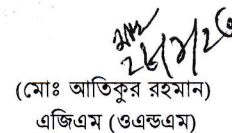 (মোঃ আতিকুর রহমান)
এজিএম (ওএন্ডএম)